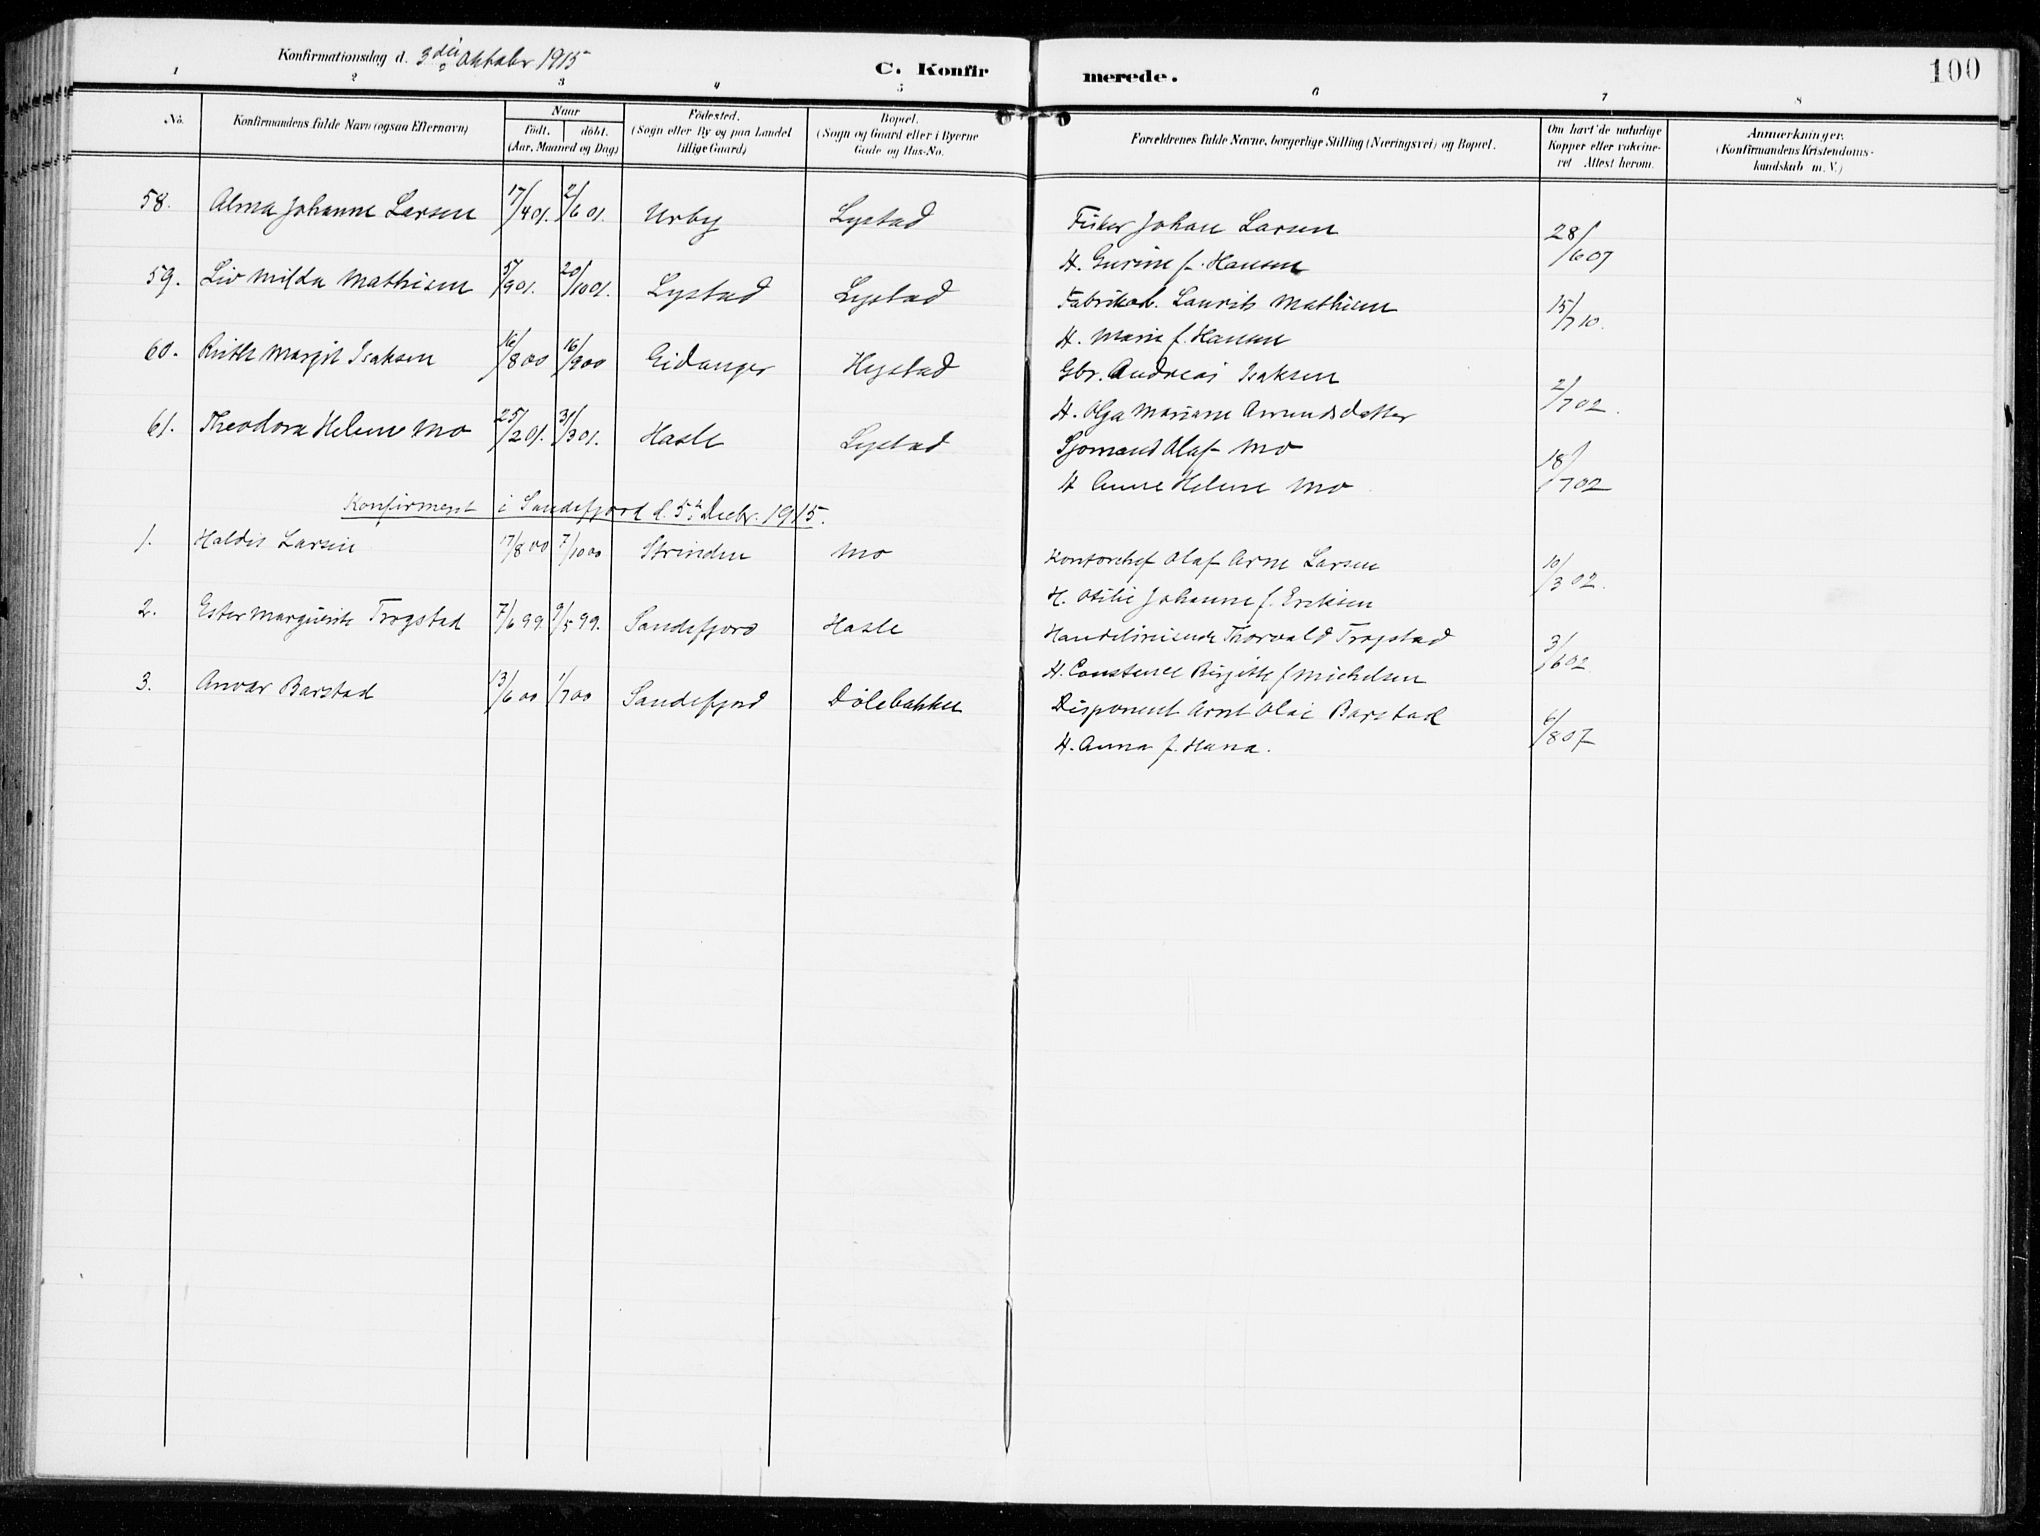 Konfirmationsdag d. 3die Oktober 1915
C. Konfirmerede.
100
1 2 3 4 5 6 7 8
No.
Konfirmandens fulde Navn (ogsaa Efternavn)
Naar
født. døbt.
(Aar, Maaned og Dag)
Fødested.
(Sogn eller By og paa Landet
tillige Gaard)
Bopæl.
(Sogn og Gaard eller i Byerne
Gade og Hus-No.
Forældrenes fulde Navne, borgerlige Stilling (Næringsvei) og Bopæl.
Om havt de naturlige
Kopper eller vakcine-
ret Attest herom.
Anmærkninger.
(Konfirmandens Kristendoms-
kundskab m. V.)
58. Alma Johanne Larsen 17/4 01. 2/6 01. Nrby Lystad Fisker Johan Larsen 28/6 07
H. Gurine f. Hansen
59. Liv Milda Mathisen 5/9 01. 20/10 01. Lystad Lystad Fabrikarb. Laurits Mathisen 15/7 10.
H. Marie f. Hansen
60. Ruth Margit Isaksen 16/8 00 16/9 00 Eidanger Hystad Gbr. Andreas Isaksen 2/7 02.
H. Olga Mariane Amundsdatter
61. Theodora Helene Mo 25/2 01. 31/3 01. Hasle Lystad Sjømand Olaf Mo 18/7 02
H Anne Helene Mo
Konfirmert i Sandefjord d. 5te Decbr. 1915.
1. Haldis Larsen 17/8 00 7/10 00 Strinden Mo Kontorchef Olaf Arne Larsen 10/3 02.
H. Otilie Johanne f. Eriksen
2. Ester Marguerite Trøgstad 7/6 99 9/5 99. Sandefjord Hasle Handelsreisende Thorvald Trøgstad 3/6 02
H. Constance Birgitte f Michelsen
3. Anvar Barstad 13/6 00 1/7 00 Sandefjord Dølebakken Disponent Arnt Olai Barstad 6/8 07
H. Anna f. Hana.